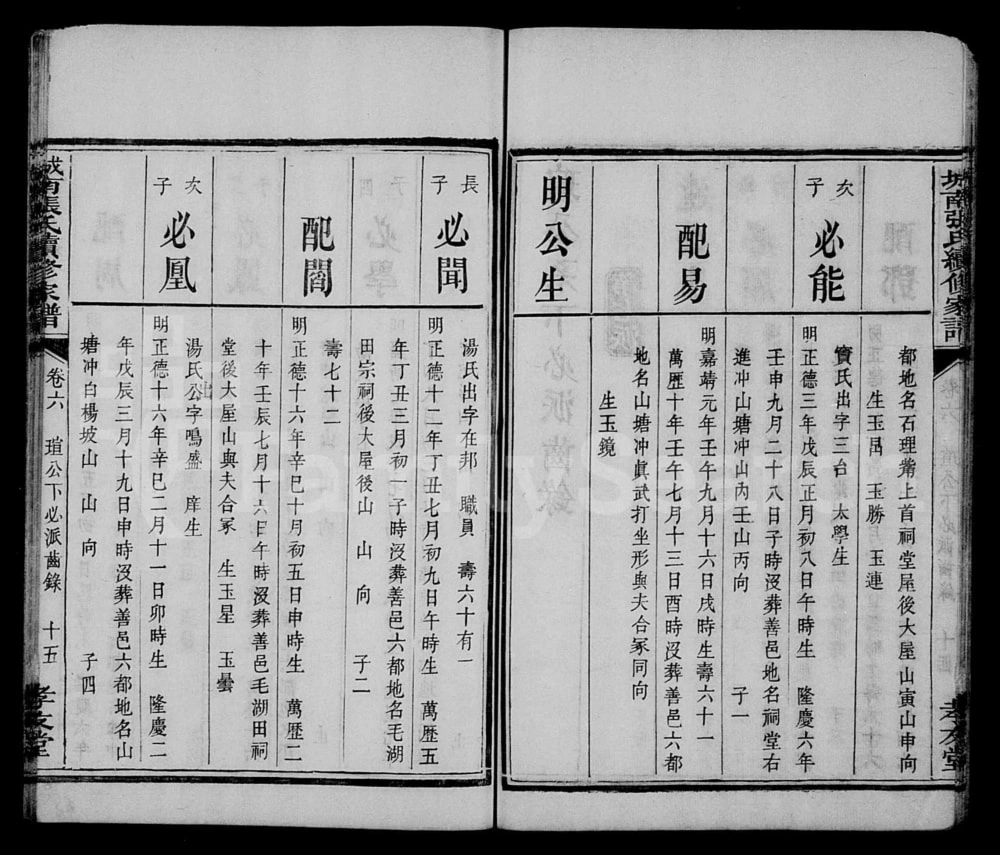 城南張氏續修家譜
孝友堂
都地名石理嶺上首祠堂屋後大屋山寅山申向
生玉呂 玉勝 玉連
次子 必能
寶氏出字三台 太學生
明正德三年戊辰正月初八日午時生 隆慶六年
壬申九月二十八日子時沒葬善邑六都地名祠堂右
進沖山塘沖山內壬山丙向 子一
配易
明嘉靖元年壬午九月十六日戌時生壽六十一
萬歷十年壬午七月十三日酉時沒葬善邑六都
地名山塘沖眞武打坐形與夫合冢同向
生玉鏡
明公生
長子 必聞
湯氏出字在邦 職員 壽六十有一
明正德十二年丁丑七月初九日午時生 萬歷五
年丁丑三月初一子時沒葬善邑六都地名毛湖
田宗祠後大屋後山 山 向 子二
配閻
壽七十二
明正德十六年辛巳十月初五日申時生 萬歷二
十年壬辰七月十六日午時沒葬善邑毛湖田祠
堂後大屋山與夫合冢 生玉星 玉曇
次子 必凰
湯氏公字鳴盛 庠生
明正德十六年辛巳二月十一日卯時生 隆慶二
年戊辰三月十九日申時沒葬善邑六都地名山
塘冲白楊坡山 山 向 子四
城南張氏續修家譜 卷六 瑄公下必派齒錄 十五 孝友堂